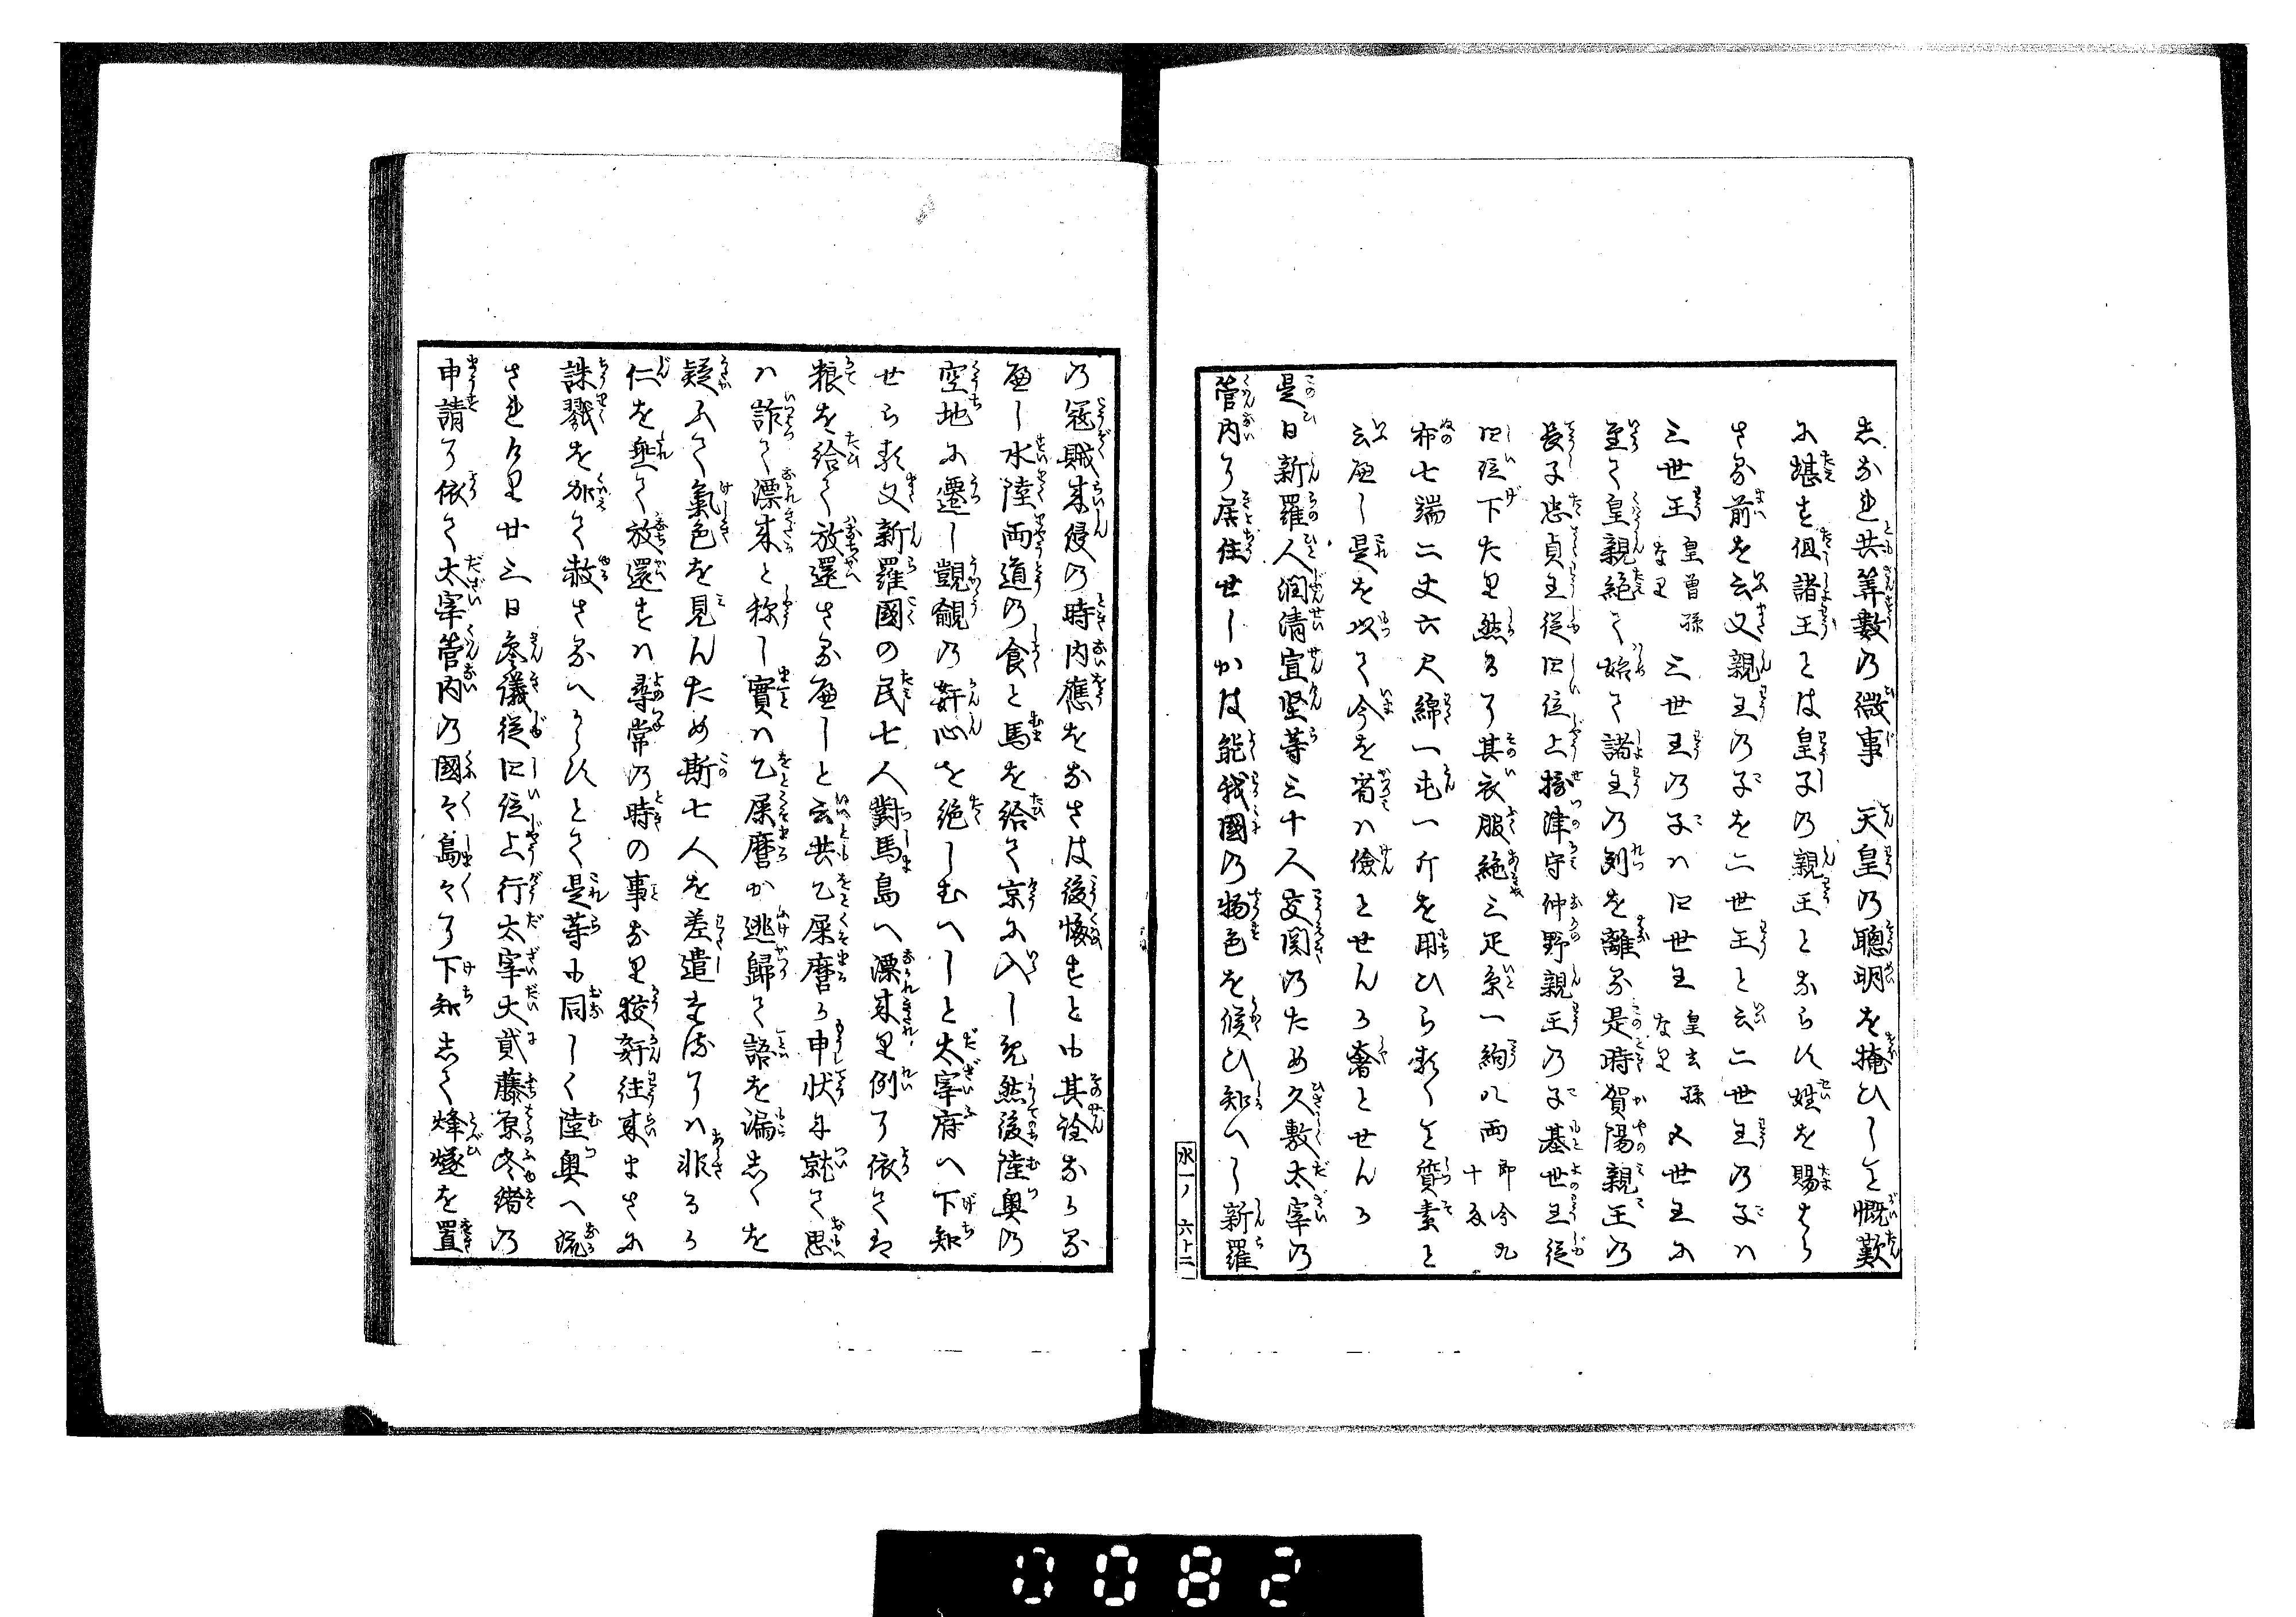 志かれ共算數の微事　天皇の聰明を掩ひしを慨歎
に堪す但諸王とは皇子の親王とならす姓を賜はら
さる前を云又親王の子を二世王と云二世王の子ハ
三世王皇曾孫なり三世王の子ハ四世王皇玄孫なり五世王に
至て皇親絶て始て諸王の列を離る是時賀陽親王の
長子忠貞王從四位上攝津守仲野親王の子基世王從
四位下たり然るに其衣服絁三疋糸一絇八両即今九十
布七端二丈六尺綿一屯一斤を用ひらるゝを質素と
云へし是を以て今を省ハ儉とせんか奢とせんか
是日新羅人潤清宣堅等三十人交関のため久敷太宰の
管内に居住せしかは能我國の物色を候ひ知へし新羅
の寇賊来侵の時内應をなさは後悔すとも其詮なかる
へし水陸両道の食と馬を給て京に入し然後陸奥の
空地に遷し覬覦の奸心を絶しむへしと太宰府へ下知
せらる又新羅國の民七人對馬島へ漂来り例に依て
粮を給て放還さるへしと云共乙屎麿か申状に就て思
ハ詐て漂来と称し實ハ乙屎麿か逃歸て語を漏しくを
疑ふて氣色を見んため斯七人を差遣まるにハ非るか
仁を垂て放還すハ尋常の時の事なり狡奸往来まさに
誅戮を加て赦さるへからすとて是等も同しく陸奥へ流
されけり廿三日參議從四位上行太宰大貳藤原冬緒の
申請に依て太宰管内の國々島々に下知志て烽燧を置
水一ノ　六十二
0082